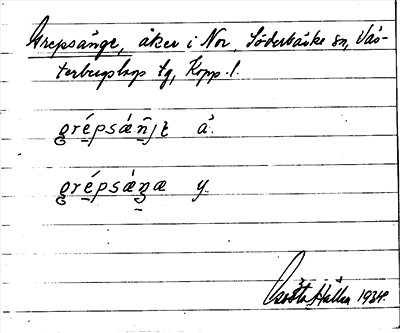 Grepsänge, åker i Nor, Söderbärke sn, Väs-
terbergslags tg, Kopp. l.
grépsáñjɛ ä.
grépsáŋæ y.
Gösta Hallén 1934.